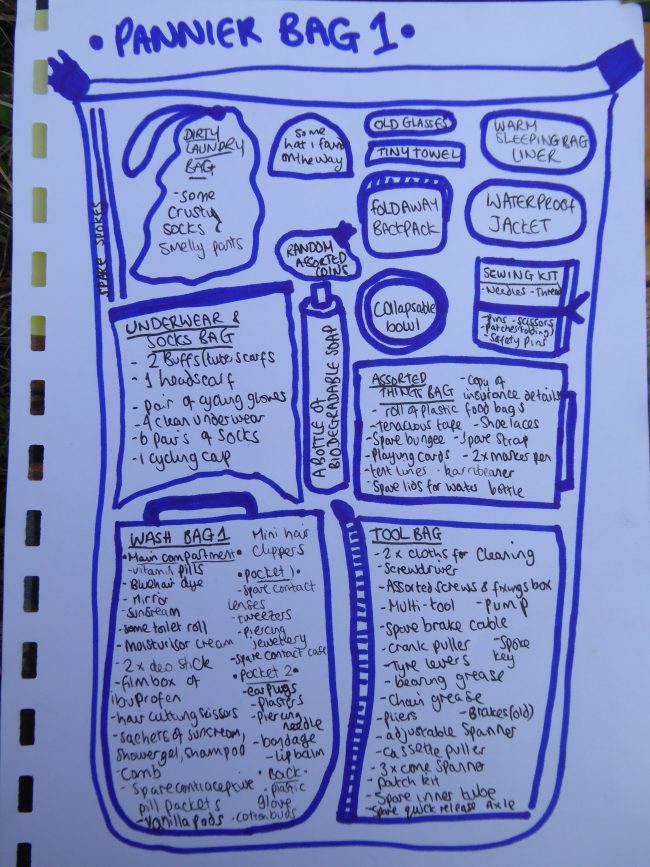 • PANNIER BAG 1 •
SPARE SPOKES
DIRTY
LAUNDRY
BAG
- some
crusty
socks
smelly pants
some
hat i found
on the way
OLD GLASSES
TINY TOWEL
WARM
SLEEPING BAG
LINER
FOLDAWAY
BACKPACK
WATERPROOF
JACKET
RANDOM
ASSORTED
COINS
Collapsable
bowl
SEWING KIT
- Needles - Thread
- Pins - scissors
- Patches (folding)
- Safety pins
UNDERWEAR &
SOCKS BAG
- 2 Buffs/tube scarfs
- 1 headscarf
- pair of cycling gloves
- 4 clean underwear
- 6 pairs of socks
- 1 cycling cap
A BOTTLE OF
BIODEGRADABLE SOAP
ASSORTED
THINGS BAG
- Copy of
insurance details
- roll of plastic food bags
- tenacious tape - Shoelaces
- Spare bungee - Spare strap
- Playing cards - 2 x marker pen
- tent lines - karribeaner
- Spare lids for water bottle
WASH BAG 1
• Main compartment •
- vitamin pills
- Blue hair dye
- Mirror
- suncream
- some toilet roll
- Moisturisor cream
- 2 x deo stick
- film box of
ibuprofen
- hair cutting scissors
- sachets of suncream,
shower gel, shampoo
- Comb
- Spare contraceptive
pill packets
- vanilla pods
Mini hair
clippers
• Pocket 1 •
- Spare contact
lenses
- tweezers
- piercing
jewellery
- Spare contact case
• Pocket 2 •
- earplugs
- plasters
- Piercing
needle
- bandage
- Lip balm
• Back •
- plastic
glove
- cotton buds
TOOL BAG
- 2 x cloths for cleaning
- Screwdriver
- Assorted screws & fixings box
- Multi-tool - Pump
- Spare brake cable
- crank puller - Spoke
key
- Tyre levers
- bearing grease
- Chain grease
- Pliers - Brakes (old)
- adjustable spanner
- cassette puller
- 3 x cone spanner
- Patch kit
- Spare inner tube
- Spare quick release axle